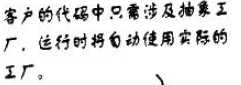 客户的代码中只需涉及抽象工
厂，运行时将自动使用实际的
工厂。